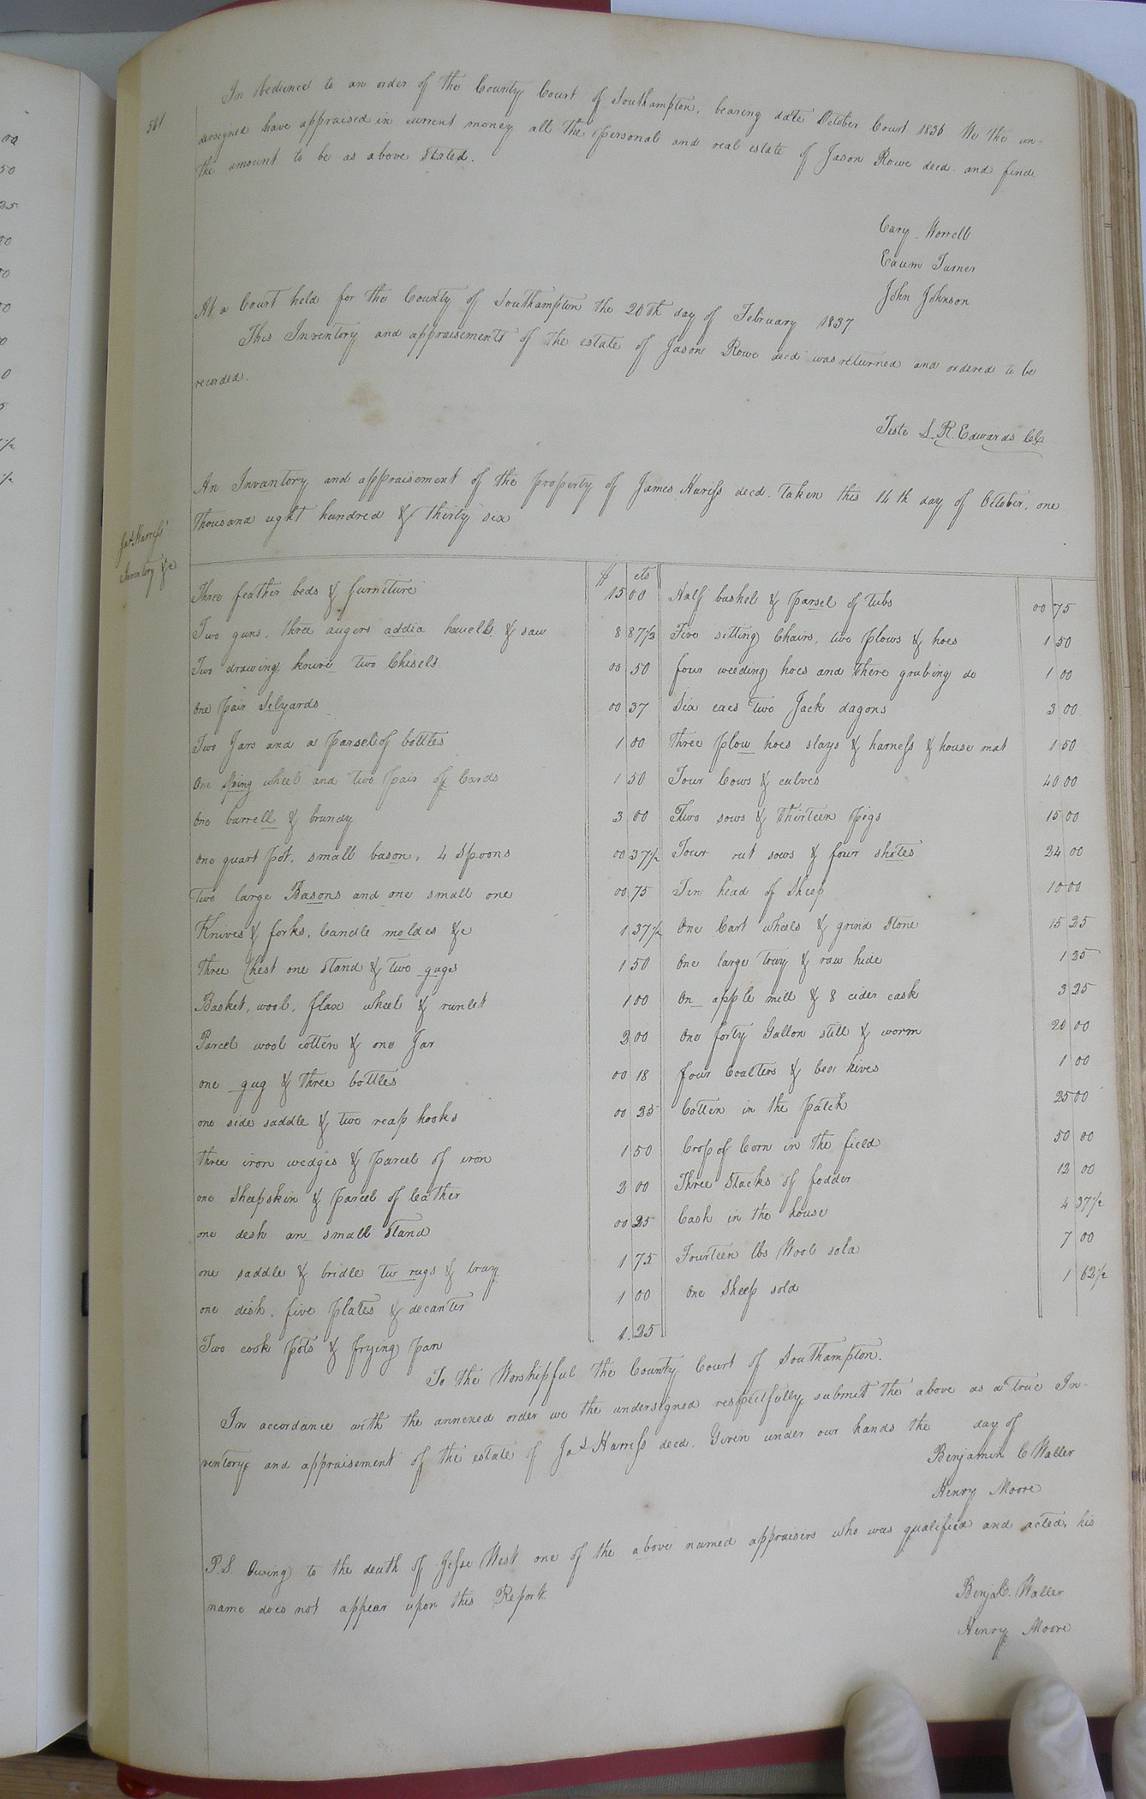 541
In obedience to an order of the County Court of Southampton, bearing date October Court 1836 We the un-
dersigned have appraised in current money all the personal and real estate of Jason Rowe decd. and find
the amount to be as above Stated.
Cary Worrell
Exum Turner
John Johnson
At a Court held for the County of Southampton the 20th day of February 1837
This Inventory and appraisements of the estate of Jason Rowe decd was returned and ordered to be
recorded.
Teste L. R. Edwards CC
Jas. Harriss'
Inventory &c
An Inventory and appraisement of the property of James Hariss decd. Taken this 14th day of October, one
thousand eight hundred & thirty six
$ cts
Three feather beds & furniture 15 00
Two guns, three augers addia howells & saw 8 87 1/2
Two drawing knive two Chisels 00 50
One pair Stilyards 00 37
Two Jars and a parsel of bottles 1 00
One spinq wheel and two pair of Cards 1 50
One barrell & brandy 3 00
one quart pot, small bason, 4 Spoons 00 37 1/2
Two large Basons and one small one 00 75
Knives & forks, Candle moldes &c 1 37 1/2
Three Chest one Stand & two gugs 1 50
Basket, wool, flax wheel & runlet 1 00
Parcel wool cotten & one Jar 2 00
one gug & three bottles 00 18
one side saddle & two reap hooks 00 25
three iron wedges & parcel of iron 1 50
one Sheepskin & parcel of leather 2 00
one desk an small Stand 00 25
one saddle & bridle two rugs & tray 1 75
one dish, five plates & decanter 1 00
Two cook pots & frying pan 1 25
Half bushel & parsel of tubs 00 75
Five sitting Chairs, two plows & hoes 1 50
four weeding hoes and there grubing do 1 00
Six axes two Jack dagons 3 00
Three plow hoes slays & harness & house mat 1 50
Four Cows & calves 40 00
Two sows & thirteen pigs 15 00
Four out sows & four shotes 24 00
Ten head of Sheep 10 00
One Cart wheels & grind Stone 15 25
One large tray & raw hide 1 25
On apple mill & 8 cider cask 3 25
One forty Gallon still & worm 20 00
four Coalters & bea hives 1 00
Cotten in the patch 25 00
Crop of Corn in the field 50 00
Three Stacks of fodder 12 00
Cash in the house 4 37 1/2
Fourteen lbs Wool sold 7 00
One Sheep sold 1 62 1/2
To the Worshipful the County Court of Southampton.
In accordance with the annexed order we the undersigned respectfully submit the above as a true In-
ventory and appraisement of the estate of Jas Harriss decd. Given under our hands the day of
Benjamin C Waller
Henry Moore
P.S. Owing to the death of Jesse West one of the above named appraisers who was qualified and acted, his
name does not appear upon this Report.
Benja. C. Waller
Henry Moore